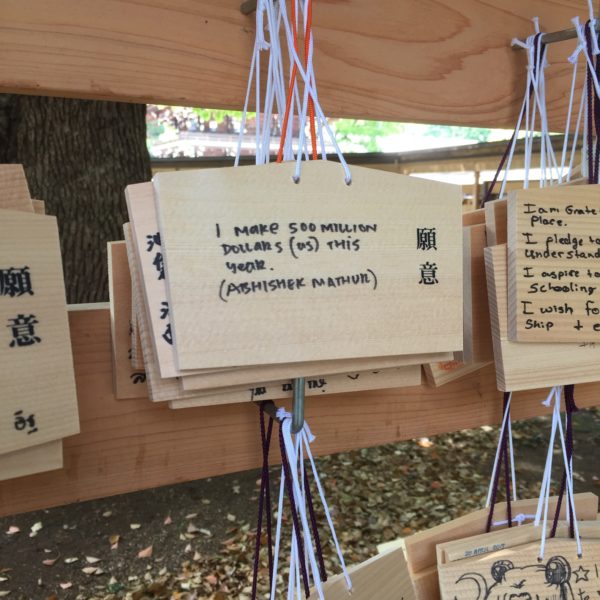 I MAKE 500 MILLION
DOLLARS (US) THIS
YEAR.
(ABHISHEK MATHUR)
願意
願意
I am Grate
Place.
I pledge to
Understand
I aspire to
Schooling
I wish fo
Ship + e
20 APRIL